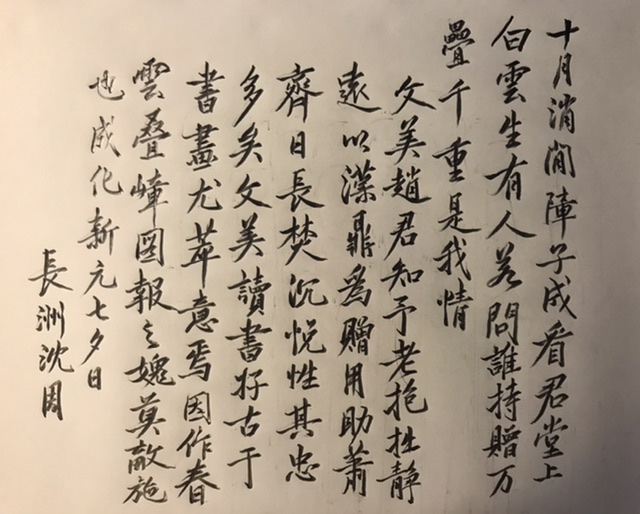 十月消閒障子成看君堂上
白雲生有人若問誰持贈万
疊千重是我情
文美趙君知予老抱拙靜
遠以漢鼎為贈用助蕭
齊日長焚沉悅性其忠
多矣文美讀書好古于
書畫尤萃意焉因作春
雲疊嶂図報之媿莫敵施
也成化新元七夕日
長洲沈周